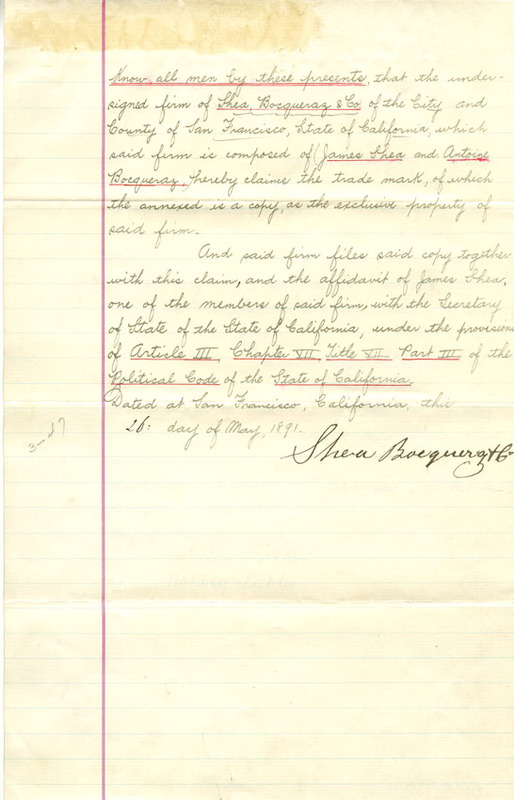 Know all men by these presents, that the under-
signed firm of Shea, Bocqueraz & Co of the City and
County of San Francisco, State of California, which
said firm is composed of (James Shea and Antoine
Bocqueraz, hereby claims the trade mark, of which
the annexed is a copy, as the exclusive property of
said firm.
And said firm files said copy together
with this claim, and the affidavit of James Shea,
one of the members of said firm, with the Secretary
of State of the State of California, under the provisions
of Article III, Chapter VII, Title VII Part III of the
Political Code of the State of California.
Dated at San Francisco, California, this
day of May, 1891.
Shea Bocqueraz & Co